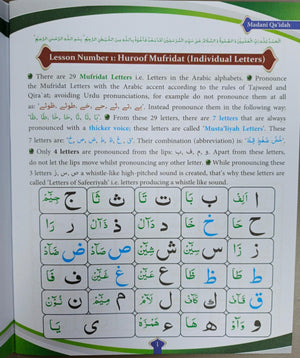 Madani Qa'idah
اَلْحَمْدُ لِلّٰهِ رَبِّ الْعٰلَمِيْنَ وَ الصَّلٰوةُ وَ السَّلَامُ عَلٰى سَيِّدِ الْمُرْسَلِيْنَ اَمَّا بَعْدُ فَاَعُوْذُ بِاللّٰهِ مِنَ الشَّيْطٰنِ الرَّجِيْمِ ؕ بِسْمِ اللّٰهِ الرَّحْمٰنِ الرَّحِيْمِ ؕ
Lesson Number 1: Huroof Mufridat (Individual Letters)
There are 29 Mufridat Letters i.e. Letters in the Arabic alphabets. Pronounce
the Mufridat Letters with the Arabic accent according to the rules of Tajweed and
Qira'at; avoiding Urdu pronunciations, for example do not pronounce them at all
as: Instead pronounce them in the following way:
From these 29 letters, there are 7 letters that are always
pronounced with a thicker voice; these letters are called 'Musta'liyah Letters'. These
7 letters are Their combination (abbreviation) is:
Only 4 letters are pronounced from the lips: ب، ف، م، و. Apart from these letters,
do not let the lips move whilst pronouncing any other letter. While pronouncing these
3 letters ز، س، ص a whistle-like high-pitched sound is created, that's why these letters are
called 'Letters of Safeeriyah' i.e. letters producing a whistle like sound.
ا اَلِفْ ب بَا ت تَا ث ثَا ج جِيْمْ
ح حَا خ خَا د دَالْ ذ ذَالْ ر رَا
ز زَا س سِيْنْ ش شِيْنْ ص صَادْ ض ضَادْ
ط طَا ظ ظَا ع عَيْنْ غ غَيْنْ ف فَا
ق قَافْ ك كَافْ ل لَامْ م مِيْمْ ن نُوْنْ
و وَاوْ ه هَا ء هَمْزَهْ ي يَا
1